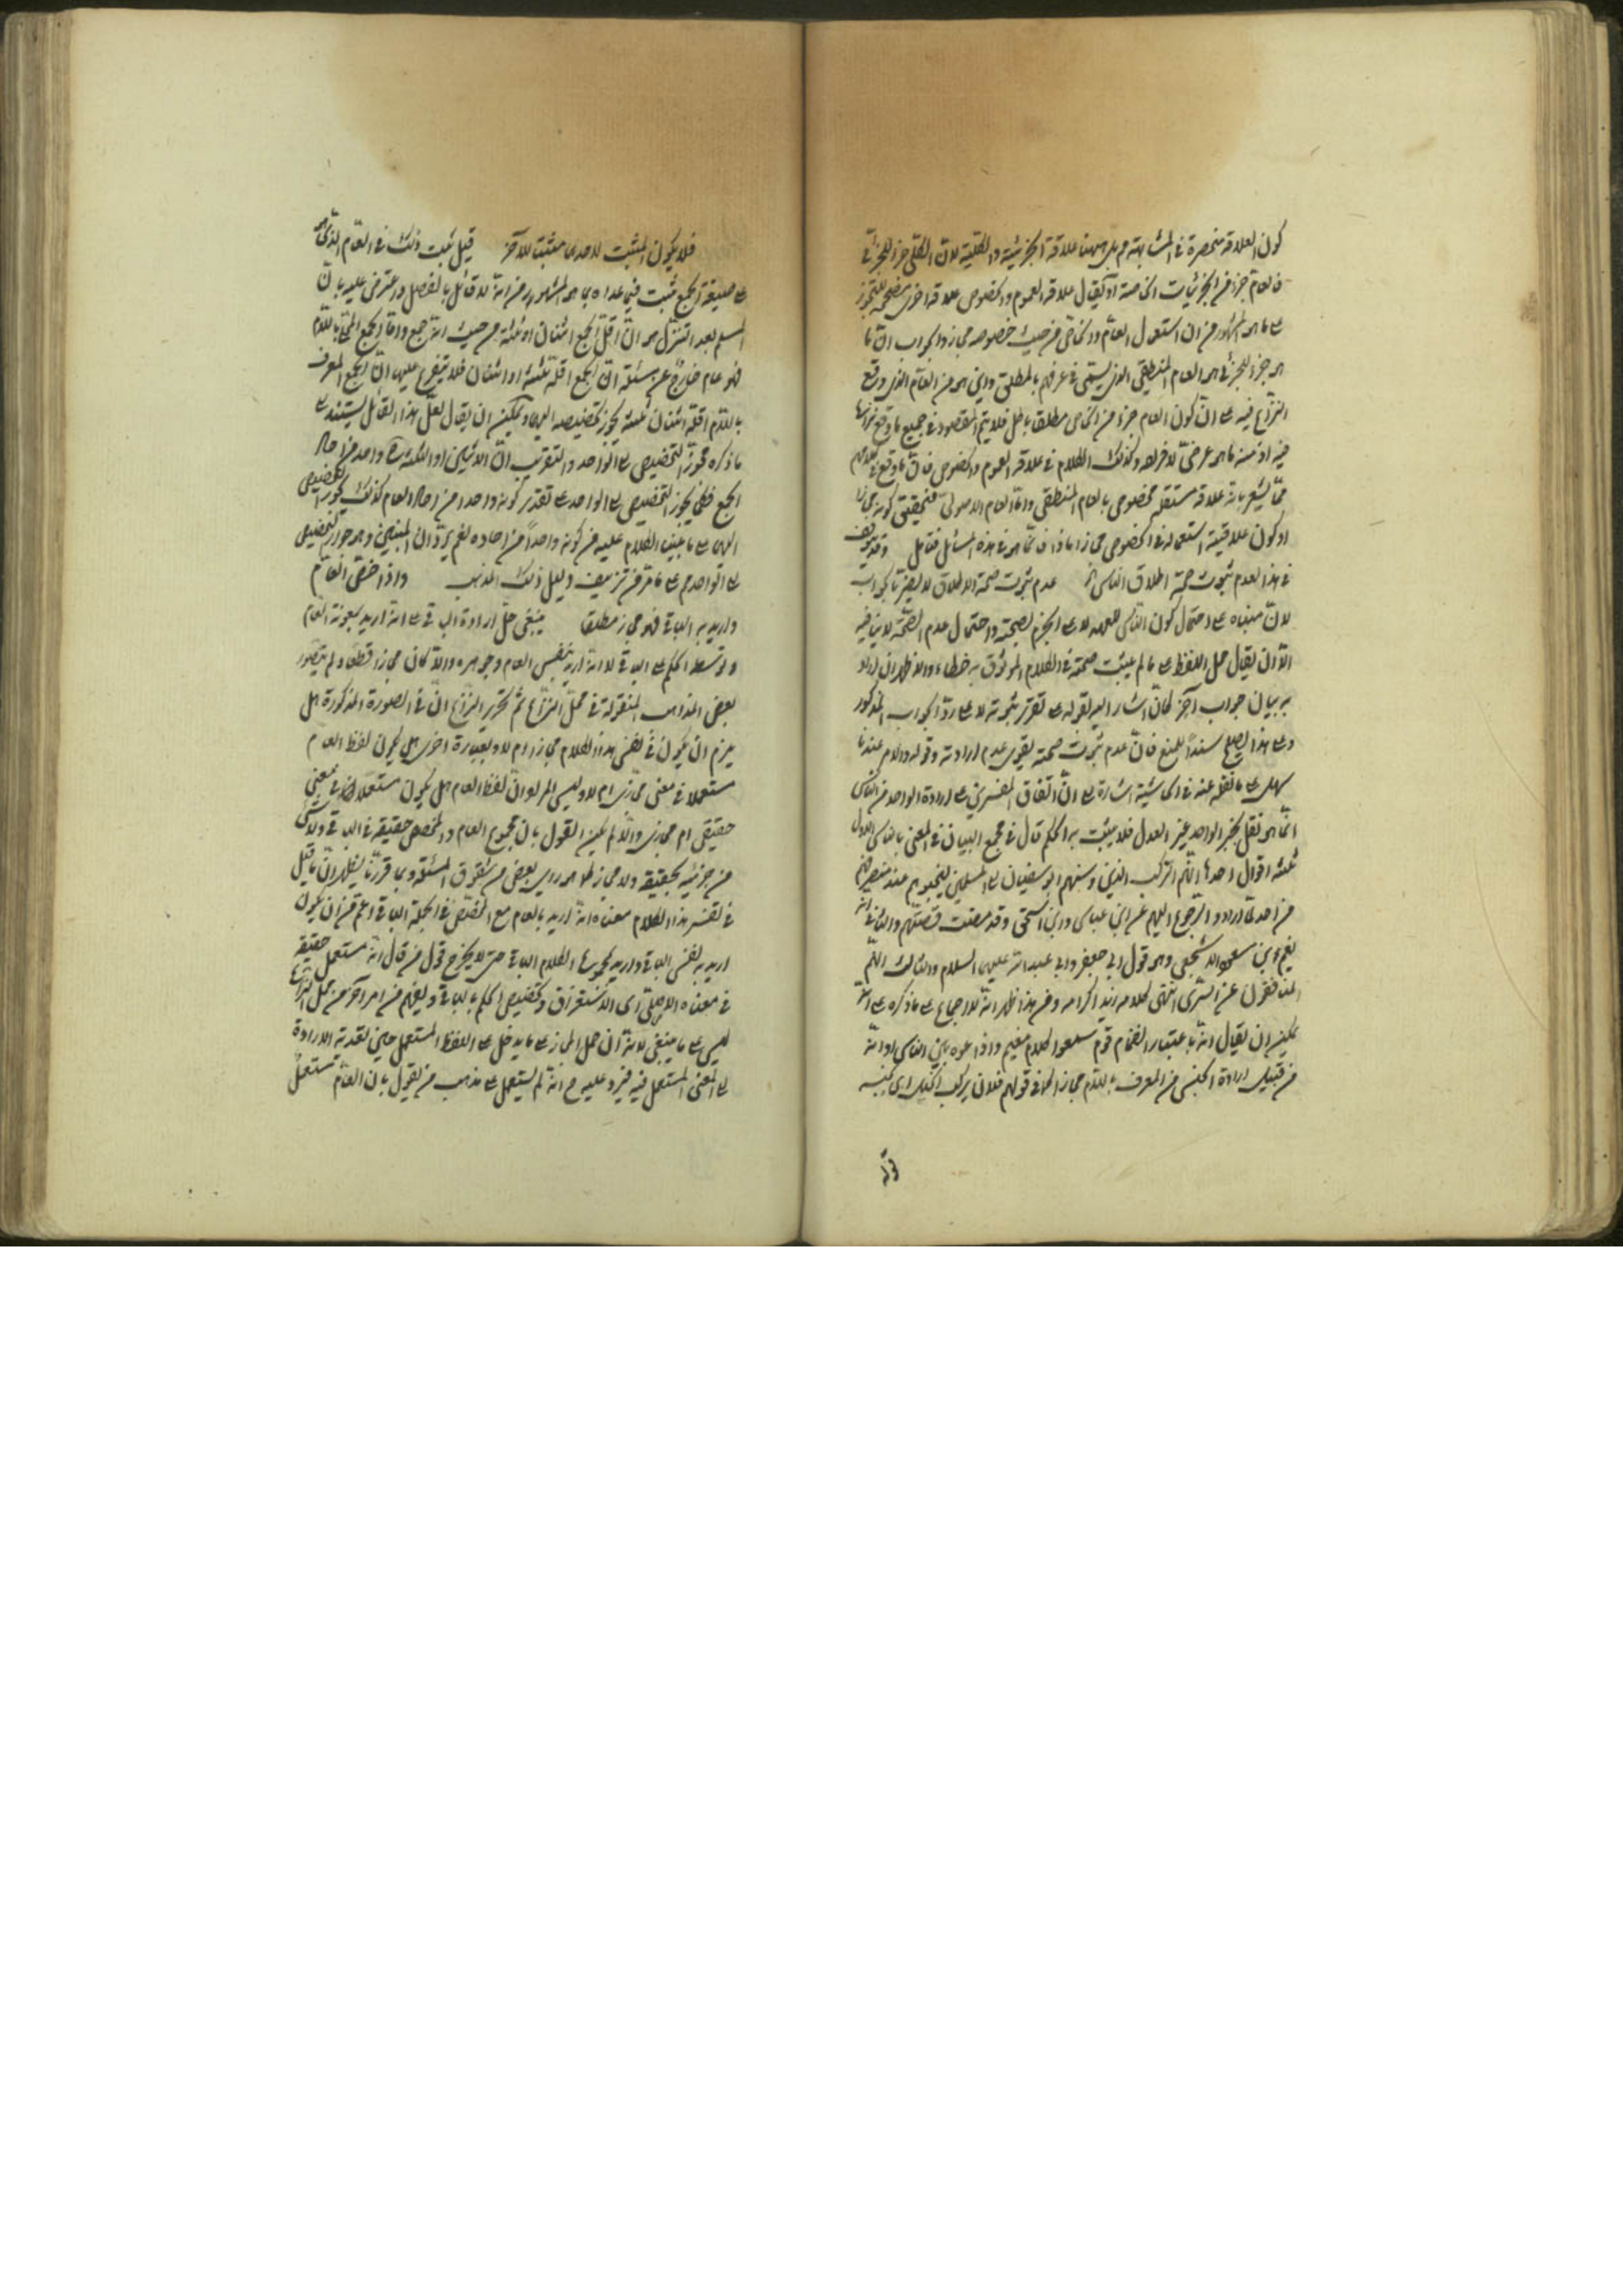 كون العلاقة منحصرة في المشابهة وبل ههنا علاقة الجزئية والكلية لان الكلي جزء للجزئي
فالعام جزء من الجزئيات الخاصة او يقال علاقة العموم والخصوص علاقة اخرى مصححة للتجوز
على ما هو المشهور من ان استعمال العام في الخاص من حيث خصوصه مجاز والجواب ان ما
هو جزء للجزئي هو العام المنطقي الذي يسمى في عرفهم بالمطلق واين هو من العام الذي وقع
النزاع فيه على ان كون العام جزء من الخاص مطلقا باطل فلا يتم المقصود في جميع ما وقع نزاعنا
فيه اذ منه ما هو عرضي لافراده وكذلك الكلام في علاقة العموم والخصوص فان ما وقع في كلامهم
مما يشعر بانه علاقة مستقلة مخصوص بالعام المنطقي واما العام الاصولي فتحقيق كونه مجازا
او كون علاقته استعماله في الخصوص مجازا ماذا فانما هو في هذه المسائل فتأمل وقد يتوقف
في هذا لعدم ثبوت صحة اطلاق الناس الخ عدم ثبوت صحة الاطلاق لا يضر بالجواب
لان مبناه على احتمال كون الناس للعهد لا على الجزم بصحته واحتمال عدم الصحة لا ينافيه
الا ان يقال حمل اللفظ على ما لم يثبت صحته في الكلام الموثوق به خطاء والاظهر ان اراد
به بيان جواب آخر كان اشار اليه بقوله على تقدير ثبوته لا على رد الجواب المذكور
وعلى هذا يصلح سندا للمنع فان عدم ثبوت صحته يقوي عدم ارادته وقوله والامر عندنا
سهل على ما نقل عنه في الحاشية اشارة الى ان اتفاق المفسرين على ارادة الواحد من الناس
انما هو نقل بخبر الواحد غير العدل فلا يثبت به الحكم قال في مجمع البيان في المعني بالناس الاول
ثلثة اقوال احدها انهم الركب الذين دسهم ابو سفيان الى المسلمين ليجبنوهم عند منصرفهم
من احد لما ارادوا الرجوع اليهم عن ابن عباس وابن اسحق وقد مضت قصتهم والثاني انه
نعيم بن مسعود الاشجعي وهو قول ابي جعفر وابي عبد الله عليهما السلام والثالث انهم
المنافقون عن السدي انتهى كلامه زيد اكرامه ومن هذا ظهر انه لا اجماع على ما ذكره على انه
يمكن ان يقال انه باعتبار انضمام قوم سمعوا كلام نعيم واذاعوه بين الناس او انه
من قبيل ارادة الجنس من المعرف باللام مجازا كما في قولهم فلان يركب الخيل اي جنسه
فلا يكون المثبت لاحدهما مثبتا للآخر قيل ثبت ذلك في العام الذي هو
على صيغة الجمع ثبت فيما عداه بما هو المشهور من انه لا قائل بالفصل واعترض عليه بان
المسلم بعد التنزل هو ان اقل الجمع اثنان او ثلثة من حيث انه جمع واما الجمع المحلى باللام
فهو عام خارج عن مسئلة ان الجمع اقله ثلثة او اثنان فلا يتفرع عليها ان الجمع المعرف
باللام اقله اثنان ثلثة يجوز تخصيصه اليها ويمكن ان يقال لعل هذا القائل يستند على
ما ذكره مجوز التخصيص الى الواحد والتقريب ان الاثنين او الثلثة واحد من احاد
الجمع فكما يجوز التخصيص الى الواحد على تقدير كونه واحدا من احاد العام كذلك يجوز التخصيص
اليهما على ما يبنى الكلام عليه من كونه واحدا من احاده نعم يرد ان المبنيين وهو جواز التخصيص
الى الواحد على ما مر من تزييف دليل ذلك المذهب واذا خص العام
واريد به الباقي فهو مجاز مطلقا ينبغي حمل ارادة الباقي على انه اريد بمعونة العام
وتوسط الحكم على الباقي لا انه اريد بنفس العام وجوهره والا كان مجازا قطعا ولم يتصور
بعض المذاهب المنقولة في محل النزاع ثم تحرير النزاع ان في الصورة المذكورة هل
يلزم ان يكون في نفس هذا الكلام مجاز ام لا وبعبارة اخرى هل يكون لفظ العام
مستعملا في معنى مجازي ام لا وليس المراد ان لفظ العام هل يكون مستعملا في معنى
حقيقي ام مجازي والا لم يمكن القول بان مجموع العام والمخصص حقيقة في الباقي ولا شئ
من جزئيه بحقيقة ولا مجاز كما هو رأي بعض من شقوق المسئلة وبما قررنا يظهر ان ما قيل
في تفسير هذا الكلام معناه انه اريد بالعام مع المخصص في الجملة الباقي اعم من ان يكون
اريد به نفس الباقي واريد بمجموع الكلام الباقي حتى لا يخرج قول من قال انه مستعمل حقيقة
في معناه الاصلي اي الاستغراق وتخصيص الحكم بالباقي ويفهم من امر آخر عن محل النزاع
ليس على ما ينبغي لانه ان حمل المجاز على ما يدخل على اللفظ المستعمل حين لقدته الارادة
الى المعنى المستعمل فيه فيرد عليه ح انه لم يستعمل على مذهب من يقول بان العام مستعمل